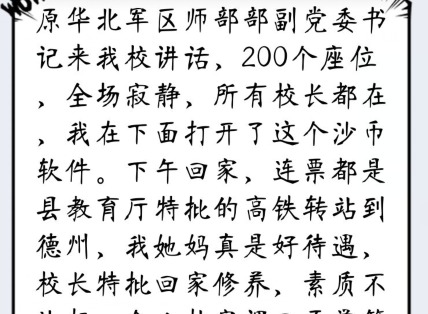 原华北军区师部部副党委书
记来我校讲话，200个座位
，全场寂静，所有校长都在
，我在下面打开了这个沙币
软件。下午回家，连票都是
县教育厅特批的高铁转站到
德州，我她妈真是好待遇，
校长特批回家修养，素质不